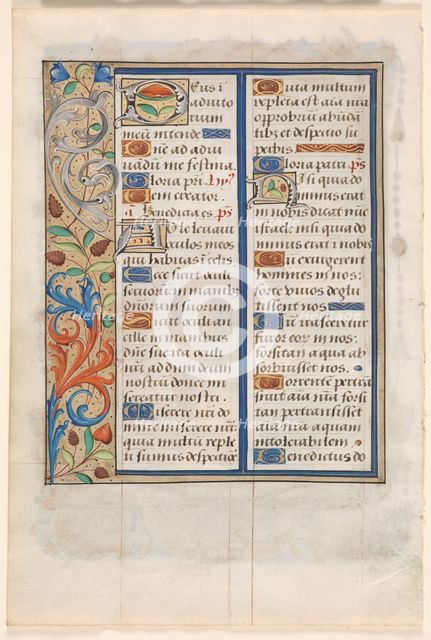 Deus ī
adiuto
rium
meū intende
Dñe ad adiu
vādū me festina
Gloria pr̄i.
Memento
rerum creator.
a Benedicta es ps
Ad te levavi
oculos meos
qui habitas ī celis
Ecce sicut oculi
servorum in manib
dñorum suorum
Sicut oculi an
cille in manibus
dñe sue ita oculi
nostri ad dñm deum
nostrū donec mi
sereatur nostri
Miserere nr̄i do
mine miserere nr̄i
quia multū reple
ti sumus despectiōe
Quia multum
repleta est aīa nr̄a
opprobriū abundā
tibz et despectio su
perbis
Gloria patri ps
Nisi quia do
minus erat
in nobis dicat nūc
israel: nisi quia do
minus erat ī nobis
Cū exurgerent
homines in nos:
forte vivos deglu
tissent nos
Cū irasceretur
furor eor in nos:
forsitan aqua ab
sorbuisset nos.
Torrentē pertrā
sivit aīa nr̄a: forsi
tan pertransisset
aīa nr̄a aquam
intolerabilem.
Benedictus do
Heritage
Images